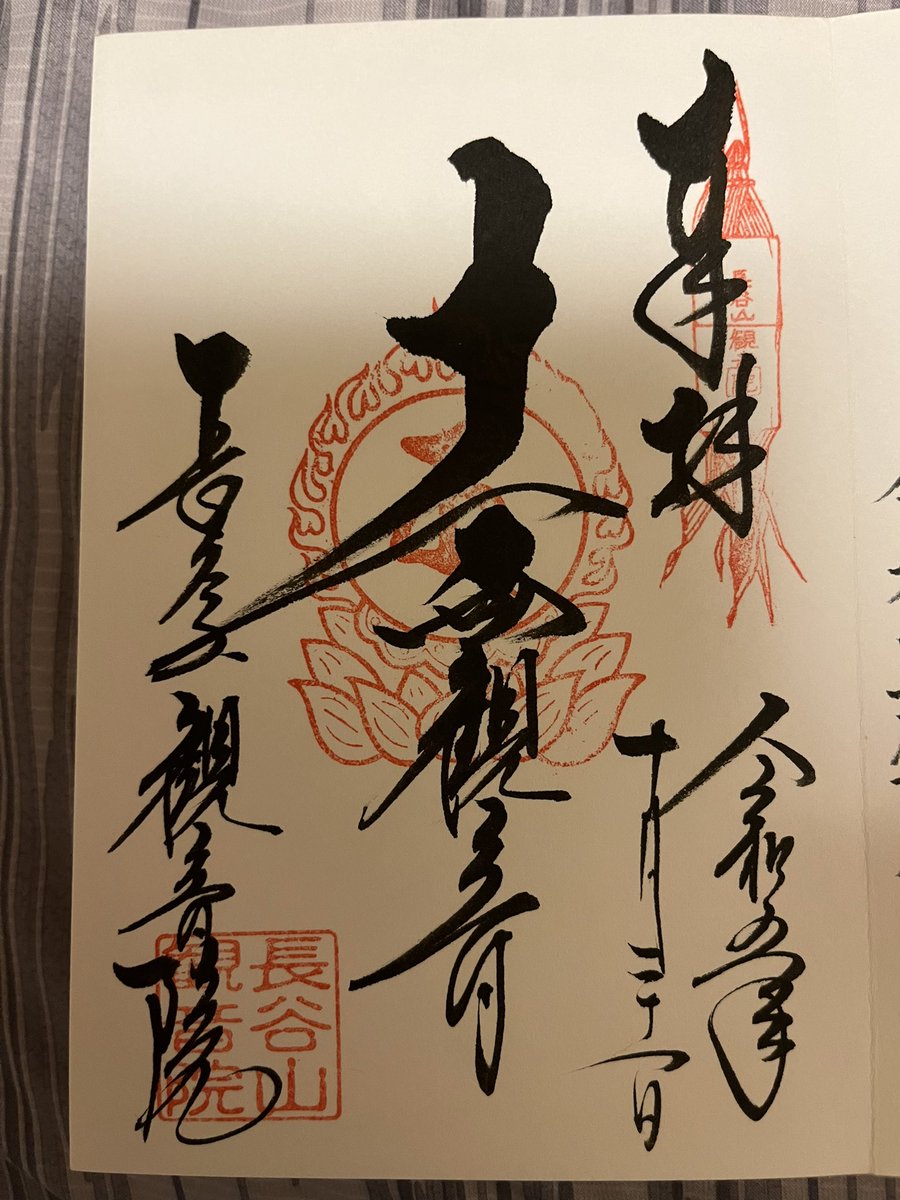 奉拝
令和五年
十月二十一日
十一面観音
観音院
長谷山
観音院
長谷山